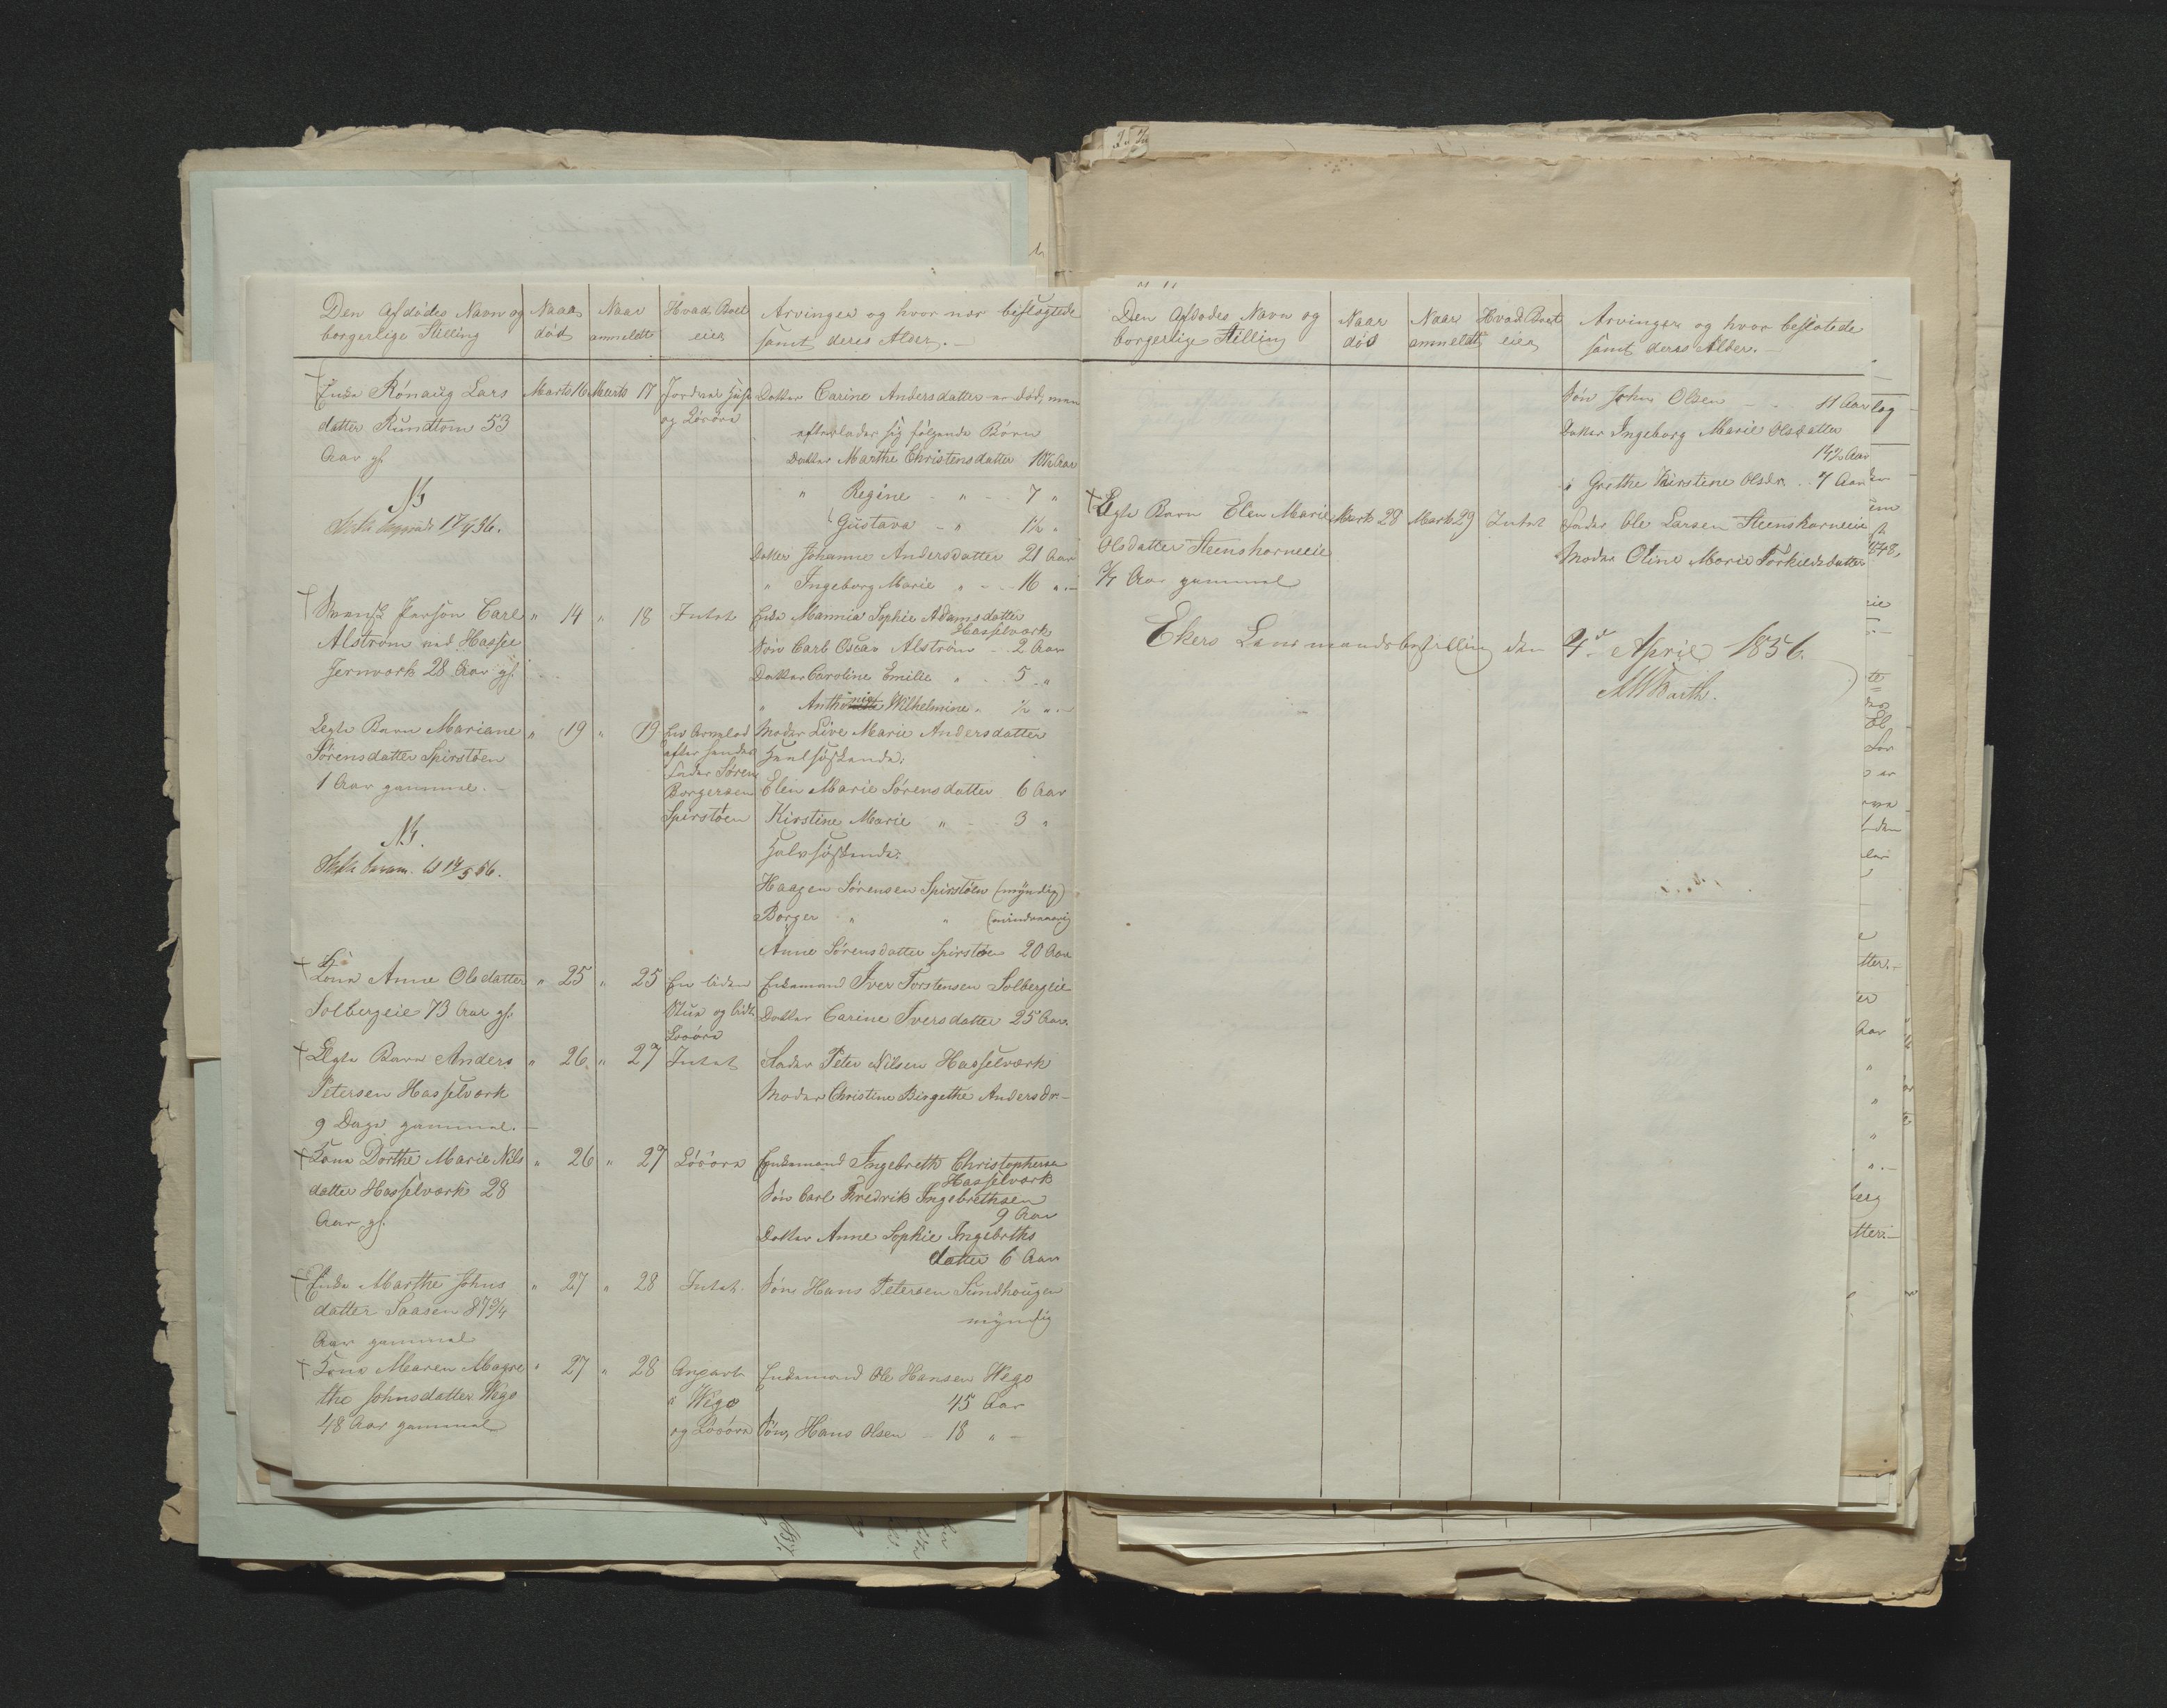 Den Afdødes Navn og borgerlige Stilling
Naar død
Naar anmeldt
Hvad Boet eier
Arvinger og hvor nær beslægtede samt deres Alder.
Enke Rønaug Lars Marts 16 Marts 17 Jordvei Huse Datter Carine Andersdatter er død, men
datter Rundtom 53 og Løsøre efterlader sig følgende Børn
Aar gl. Datter Marthe Christensdatter 10½ Aar
" Regine - " - 7 "
" Gustava - " 1½ "
Datter Johanne Andersdatter 21 Aar
" Ingeborg Marie " - 16 "
Svensk Person Carl " 14 " 18 Intet Enke Mannia Sophie Adamsdatter
Hasselværk
Alstrøm ved Hassel Søn Carl Oscar Alstrøm - 2 Aar
Jernværk 28 Aar gl. Datter Caroline Emilie " - 5 "
" Anthonie Wilhelmine " ½ "
Ægte Barn Mariane " 19 " 19 En Arvelod Moder Live Marie Andersdatter
Sørensdatter Spirstøen efter hendes Heelsøskende:
1 Aar gammel. Fader Søren Elen Marie Sørensdatter 6 Aar
Borgersen
Spirstøen Kirstine Marie " - 3 "
NB.
Halvsøskende:
Haagen Sørensen Spirstøen (myndig)
Borger " " (mindreaarig
Anne Sørensdatter Spirstøen 20 Aar
Kone Anne Olsdatter " 25 " 25 En liden Enkemand Iver Torstensen Solbergeie
Solbergeie 73 Aar gl. Stue og lidt Datter Carine Iversdatter 25 Aar.
Løsøre
Ægte Barn Anders " 26 " 27 Intet Fader Peter Nilsen Hasselværk
Petersen Hasselværk Moder Christine Birgethe Andersdr.
9 Dage gammel.
Kone Dorthe Marie Nils " 26 " 27 Løsøre Enkemand Ingebreth Christophersen
Hasselværk
datter Hasselværk 28 Søn Carl Fredrik Ingebrethsen
9 Aar
Aar gl. Datter Anne Sophie Ingebreths
datter 6 Aar
Enke Marthe Johns " 27 " 28 Intet. Søn Hans Petersen Sundhougen
datter Saasen 87¾ myndig
Aar gammel
Kone Maren Magre " 27 " 28 Anpart Enkemand Ole Hansen Wego
the Johnsdatter Wego i Wego 45 Aar
48 Aar gammel og Løsøre Søn Hans Olsen - 18 "
Den Afdødes Navn og borgerlige Stilling
Naar død
Naar anmeldt
Hvad Boet eier
Arvinger og hvor beslætede samt deres Alder.
Søn John Olsen - - 11 Aar
Datter Ingeborg Marie Olsdatter
14½ Aar
" Grethe Kirstine Olsdr. .. 7 Aar
Ægte Barn Elen Marie Marts 28 Marts 29 Intet Fader Ole Larsen Steenshorneeie
Olsdatter Steenshorneeie Moder Oline Marie Torkildsdatter
¾ Aar gammel
Ekers Lensmandsbestilling den 4de April 1856.